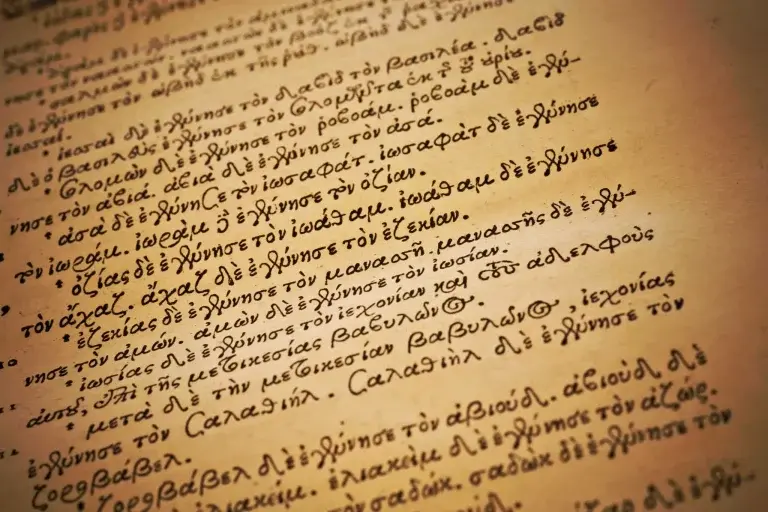 δὲ ἐγέννησε τὸν ὠβὴδ ἐκ τῆς ῥούθ. ὠβὴδ δὲ ἐγέννησε
ἰεσσαί.
* ἰεσσαὶ δὲ ἐγέννησε τὸν δαβὶδ τὸν βασιλέα. δαβὶδ
δὲ ὁ βασιλεὺς ἐγέννησε τὸν σολομῶντα ἐκ τῆς τοῦ οὐρίου.
* σολομὼν δὲ ἐγέννησε τὸν ῥοβοάμ. ῥοβοὰμ δὲ ἐγέν-
νησε τὸν ἀβιά. ἀβιὰ δὲ ἐγέννησε τὸν ἀσά.
* ἀσὰ δὲ ἐγέννησε τὸν ἰωσαφάτ. ἰωσαφὰτ δὲ ἐγέννησε
τὸν ἰωράμ. ἰωρὰμ δὲ ἐγέννησε τὸν ὀζίαν.
* ὀζίας δὲ ἐγέννησε τὸν ἰωάθαμ. ἰωάθαμ δὲ ἐγέννησε
τὸν ἄχαζ. ἄχαζ δὲ ἐγέννησε τὸν ἐζεκίαν.
* ἐζεκίας δὲ ἐγέννησε τὸν μανασσῆ. μανασσῆς δὲ ἐγέν-
νησε τὸν ἀμών. ἀμὼν δὲ ἐγέννησε τὸν ἰωσίαν.
* ἰωσίας δὲ ἐγέννησε τὸν ἰεχονίαν καὶ τοὺς ἀδελφοὺς
αὐτοῦ, ἐπὶ τῆς μετοικεσίας βαβυλῶνος.
* μετὰ δὲ τὴν μετοικεσίαν βαβυλῶνος, ἰεχονίας
ἐγέννησε τὸν σαλαθιήλ. σαλαθιὴλ δὲ ἐγέννησε τὸν
ζοροβάβελ.
* ζοροβάβελ δὲ ἐγέννησε τὸν ἀβιούδ. ἀβιοὺδ δὲ
ἐλιακείμ. ἐλιακεὶμ δὲ ἐγέννησε τὸν ἀζώρ.
τὸν σαδώκ. σαδὼκ δὲ ἐγέννησε τὸν